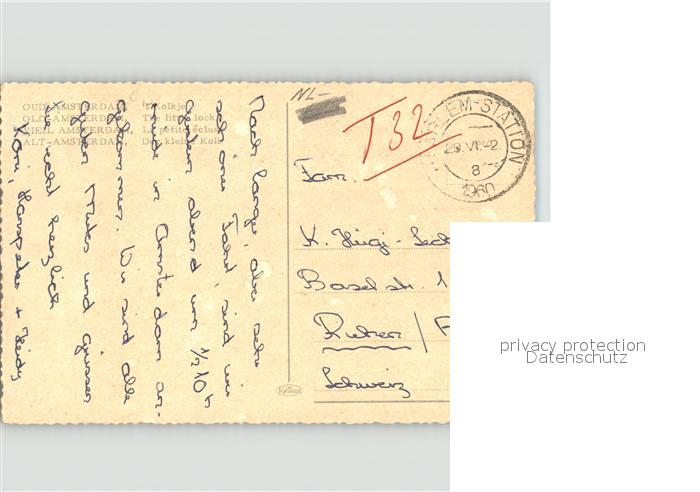 OUD-AMSTERDAM, 't Kolkje
OLD-AMSTERDAM, The little lock
VIEIL AMSTERDAM, La petite écluse
ALT-AMSTERDAM, Der kleine Kolk
Nach langer, aber sehr
schöner Fahrt, sind wir
gestern abend um 1/2 10 h
heute in Amsterdam an-
gekommen. Wir sind alle
guten Mutes und grüssen
Sie recht herzlich
Hanspeter + Heidy
NL-
T 32
HAARLEM-STATION
VII
8
1960
Fam.
K. Hügi-
Baselstr. 1
Riehen /
Schweiz
privacy protection
Datenschutz